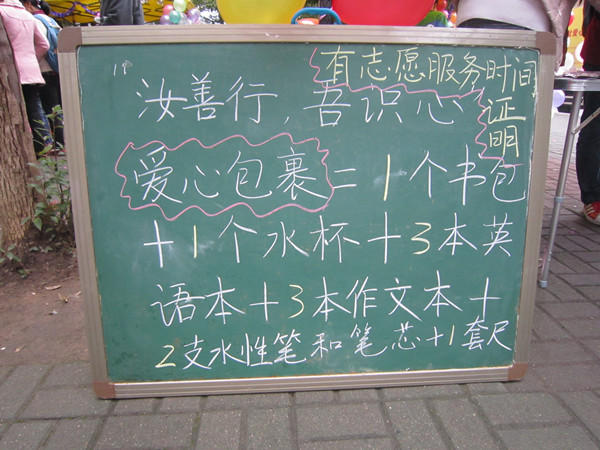 有志愿服务时间
证明
汝善行，吾识心
爱心包裹=1个书包
+1个水杯+3本英
语本+3本作文本+
2支水性笔和笔芯+1套尺